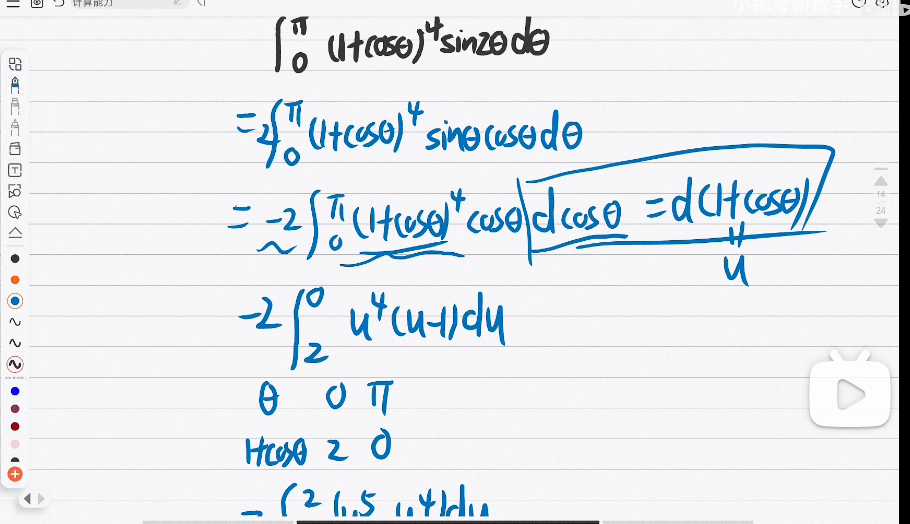 计算能力
∫₀^π (1+cosθ)⁴ sin2θ dθ
= 2∫₀^π (1+cosθ)⁴ sinθ cosθ dθ
= -2 ∫₀^π (1+cosθ)⁴ cosθ dcosθ = d(1+cosθ)
u
-2 ∫₂⁰ u⁴(u-1)du
θ 0 π
1+cosθ 2 0
16
24